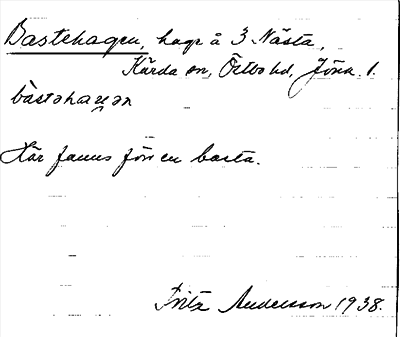 Bastehagen, hage å 3. Nästa,
Kärda sn, Östbo hd, Jönk. l.
bàstəhaɡən
Här fanns förr en basta.
Fritz Andersson 1938.